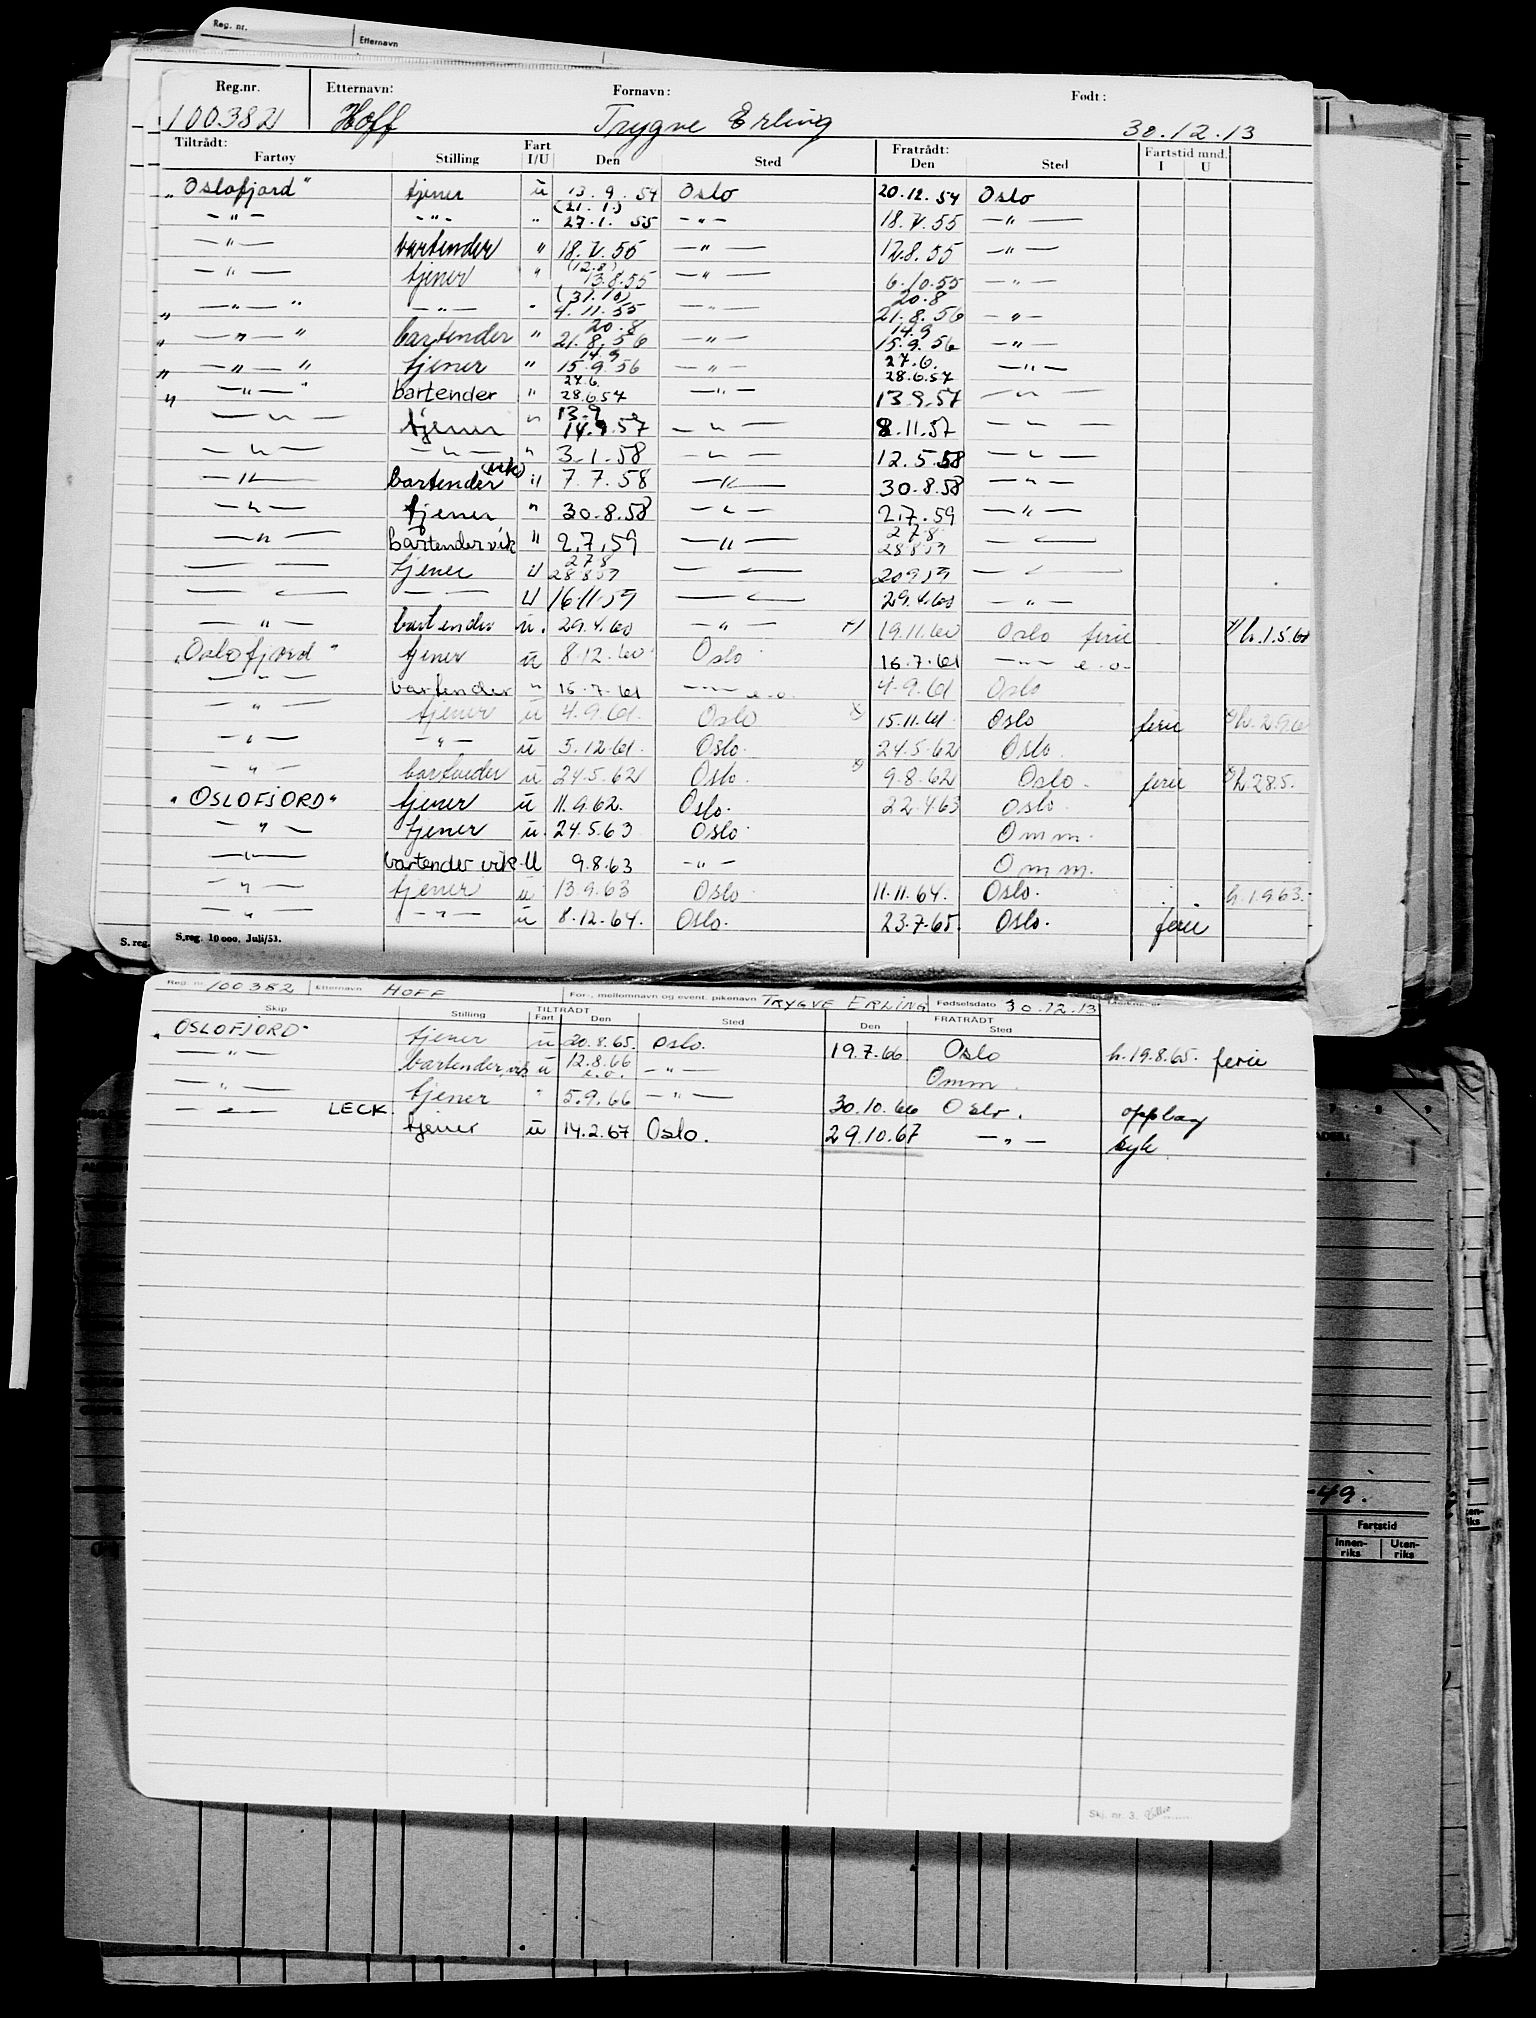 Reg. nr. Etternavn
Reg.nr. Etternavn: Fornavn: Født:
100382 Hoff Trygve Erling 30.12.13
Tiltrådt: Fart Fratrådt: Fartstid mnd.
Fartøy Stilling I/U Den Sted Den Sted I U
"Oslofjord" tjener u 13.9.54 Oslo 20.12.54 Oslo
(21.1.)
-"- -"- " 27.1.55 -"- 18.V.55 -"-
-"- bartender " 18.V.55 -"- 12.8.55 -"-
(12.8)
-"- tjener " 13.8.55 -"- 6.10.55 -"-
(31.10) 20.8
" -"- " -"- " 4.11.55 -"- 21.8.56 -"-
20.8 14.9
" -"- " bartender " 21.8.56 -"- 15.9.56 -"-
14.9 27.6.
" -"- " tjener " 15.9.56 -"- 28.6.57 -"-
27.6.
" -"- " bartender " 28.6.57 -"- 13.9.57 -"-
13.9
-"- tjener " 14.9.57 -"- 8.11.57 -"-
-"- -"- " 3.1.58 -"- 12.5.58 -"-
-"- bartender (vik) " 7.7.58 -"- 30.8.58 -"-
-"- tjener " 30.8.58 -"- 2.7.59 -"-
27.8
-"- bartender vik " 2.7.59 -"- 28.8.59 -"-
27.8
-"- tjener U 28.8.59 -"- 20.9.59 -"-
-"- -"- U 16.11.59 -"- 29.4.60 -"-
-"- bartender u. 29.4.60 -"- x) 19.11.60 Oslo ferie x) h.1.5.60
"Oslofjord" tjener u 8.12.60 Oslo 15.7.61 -"- e.o.
-"- bartender " 15.7.61 -"- e.o. 4.9.61 Oslo
-"- tjener u 4.9.61. Oslo x) 15.11.61. Oslo ferie x) h.2.9.61
-"- -"- u 5.12.61. Oslo. 24.5.62 Oslo.
-"- bartender u 24.5.62 Oslo. x) 9.8.62 Oslo. ferie x) h 28.5.
"OSLOFJORD" tjener u 11.9.62. Oslo. 22.4.63 Oslo.
-"- tjener u. 24.5.63 Oslo. Omm.
-"- bartender vik. U 9.8.63 -"- Omm.
-"- tjener u 13.9.63 Oslo 11.11.64. Oslo. h.1.9.63.
-"- -"- u 8.12.64. Oslo. 23.7.65. Oslo. ferie
S. reg. S.reg. 10 000. Juli/53.
Reg. nr. 100382 Etternavn HOFF For-, mellomnavn og event. pikenavn TRYGVE ERLING Fødselsdato 30.12.13
TILTRÅDT FRATRÅDT
Skip Stilling Fart Den Sted Den Sted
"OSLOFJORD" tjener u 20.8.65. Oslo. 19.7.66 Oslo h.19.8.65. ferie
-"- bartender, vik u 12.8.66 e.o. -"- Omm.
-"- tjener " 5.9.66 -"- 30.10.66 Oslo. opplag
-"- LECK. tjener u 14.2.67 Oslo. 29.10.67 -"- syk.
Skj. nr. 3.
-49.
Fartstid
Innen-riks Uten-riks